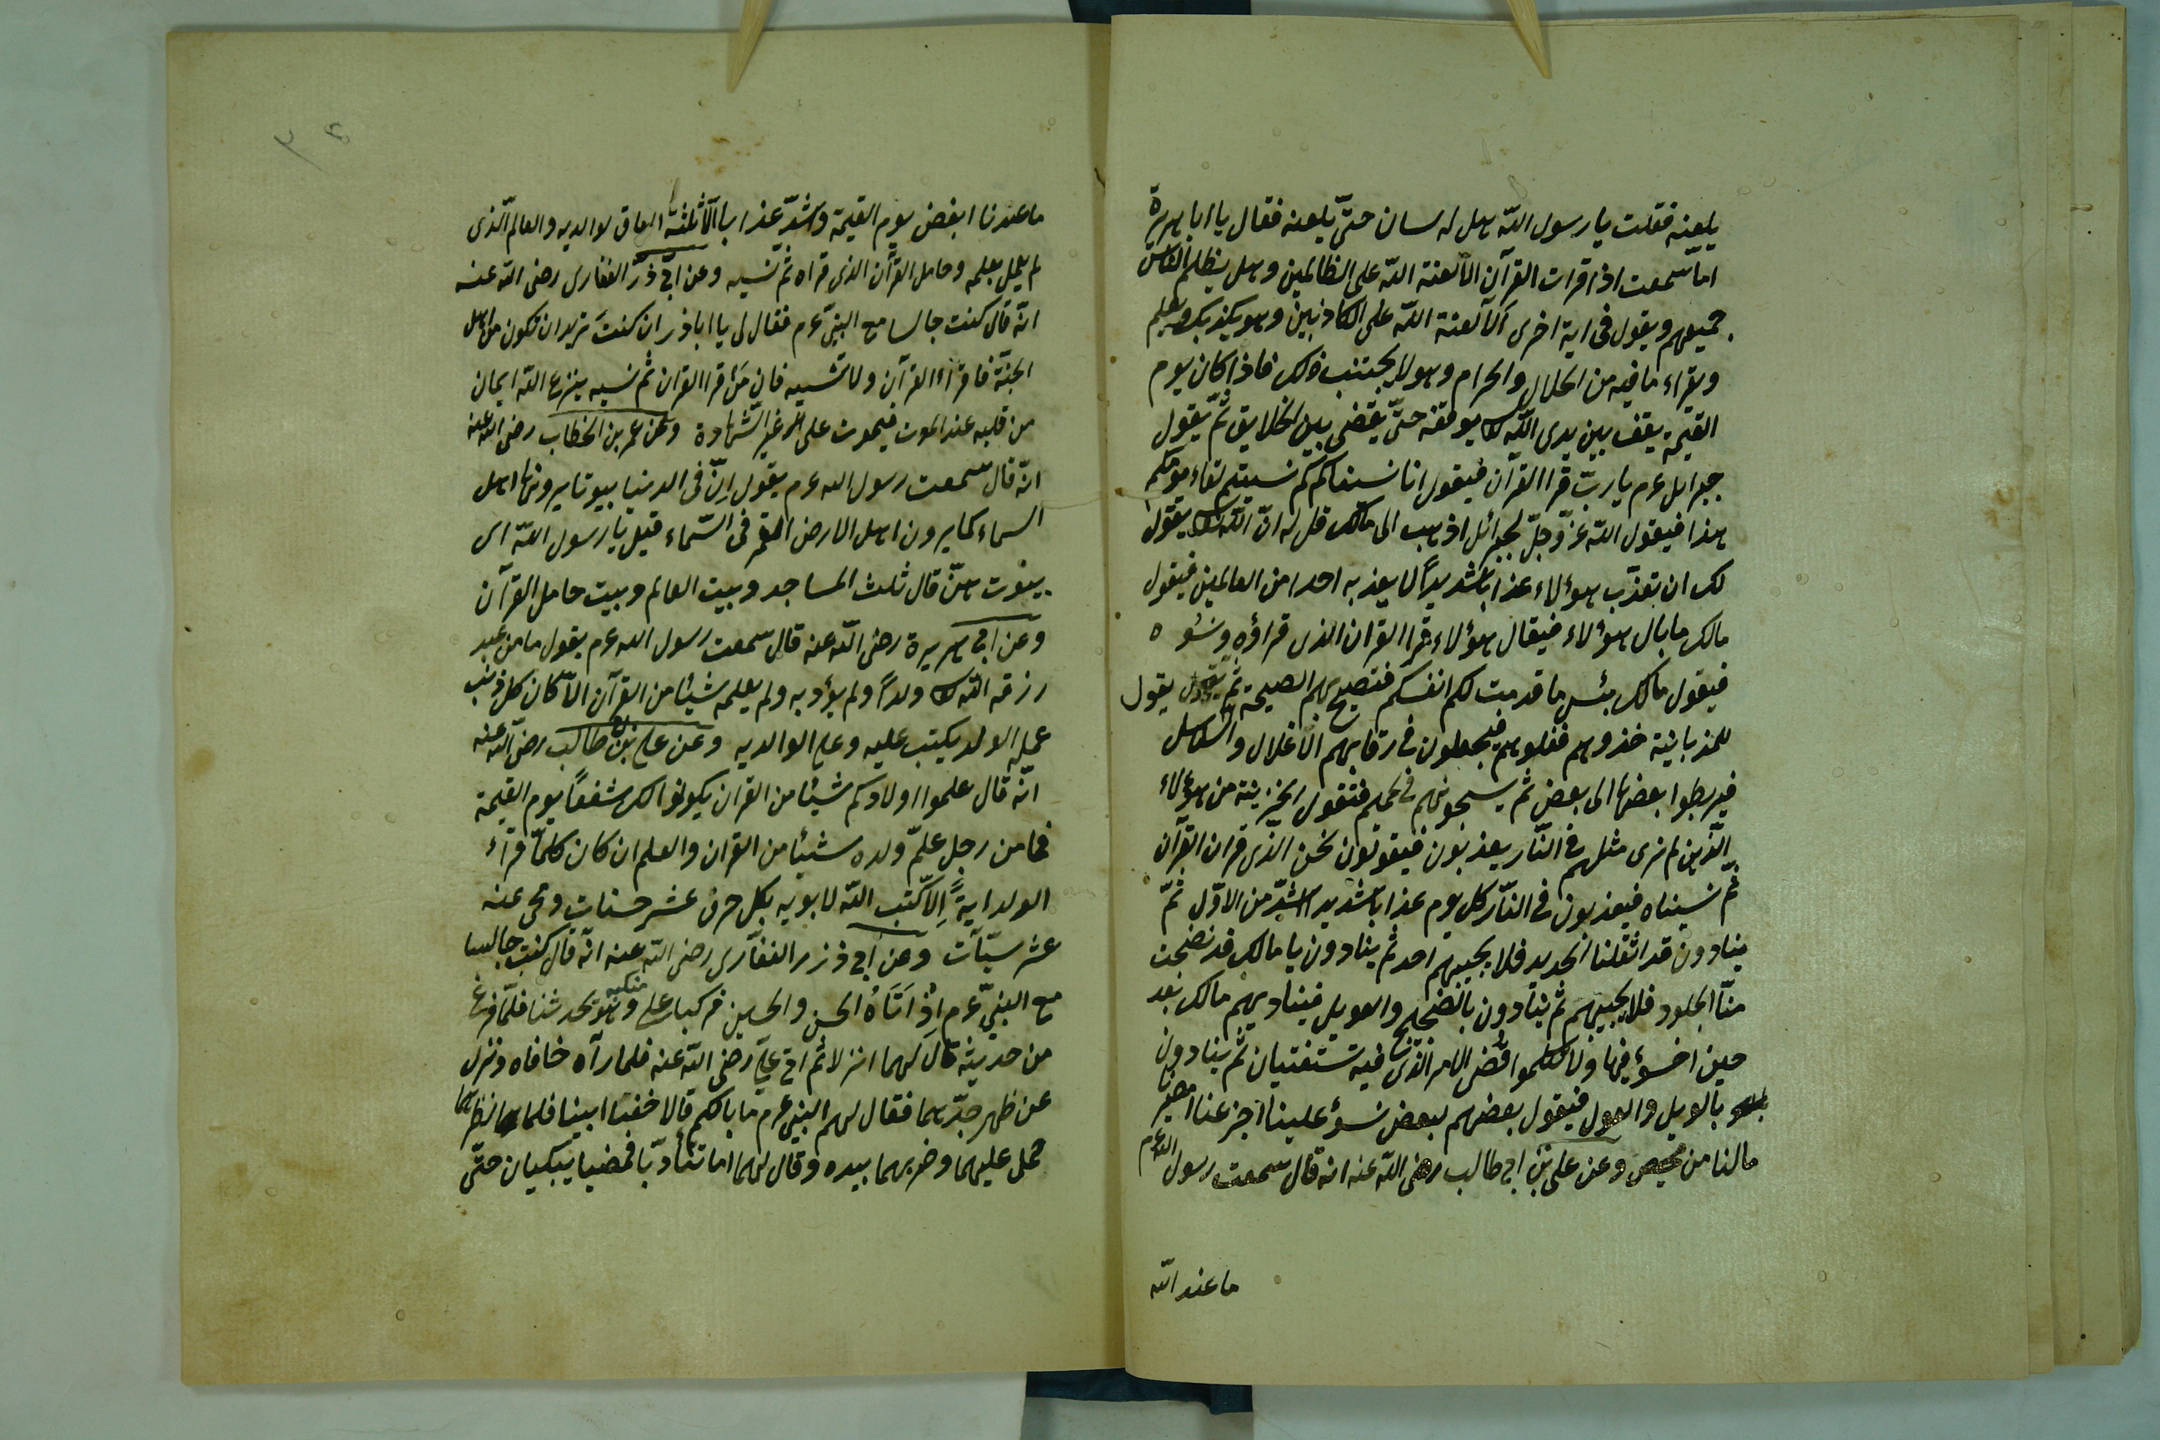 يلعنه فقلت يا رسول الله هل له لسان حتّى يلعنه فقال يا ابا هريرة
اما سمعت اذا قرات القرآن الا لعنة الله على الظالمين وهل يظلم الناس
جميعهم ويقول فى اية اخرى الا لعنة الله على الكاذبين وهو يكذب ويعلم
ويقراء ما فيه من الحلال والحرام وهو لا يجتنب ذلك فاذا كان يوم
القيمة يقف بين يدى الله يوقفه حتّى يقضى بين الخلايق ثمّ يقول
جبرايل عم يا ربّ قرا القرآن فيقول انا ننسفاكم كم نسيتم لقاء يومكم
هذا فيقول الله عزّ وجلّ لجبرائل اذهب الى مالك قل له انّ الله يقول
لك ان تعذّب هؤلاء عذابا شديداً لا يعذبه احدا من العالمين فيقول
مالك ما بال هؤلاء فيقال هؤلاء قرا القران الذى قراؤه ونسوه
فيقول مالك بئس ما قدمت لكم انفسكم فتصيح بهم الصيحة ثمّ يقول
للمزبانية خذوهم فغلوهم فيجعلون فى رقابهم الاغلال والسلاسل
فيربطوا بعضها الى بعض ثم يسحبونهم فى فتقول الخزينة من هؤلاء
الّذين لم نرى مثلهم فى النّار يعذبون فيقولون نحن الّذى قران القرآن
ثمّ نسيناه فيعذبون فى النّار كل يوم عذابا شديدا اشدّ من الاوّل ثمّ
ينادون قد اثقلنا الحديد فلا يجيبهم احد ثم ينادون يا مالك قد نضجت
منّا الجلود فلا يجيبهم ثم ينادون بالضجيج والعويل فيناديهم مالك بعد
حين اخسؤ فيها ولا تكلموا قضى الامر الّذى فيه تستفتيان ثم ينادون
بالويل والعول فيقول بعضهم لبعض سوؤ علينا اجزعنا ام صبرنا
مالنا من محيص وعن على بن ابى طالب رضى الله عنه انه قال سمعت رسول الله عم
ما عند الله
ما عندنا ابغض يوم القيمة واشدّ عذابا الا ثلثة العاق لوالديه والعالم الّذى
لم يعمل بعلمه وحامل القرآن الذى قراه ثم نسيه وعن ابى ذرّ الغفارى رضى الله عنه
انّه قال كنت جالسا مع النبىّ عم فقال لى يا اباذر ان كنتَ تريد ان تكون من اهل
الجنّة فاقراء القرآن ولا تنسيه فان مَن قرا القران ثم نسيه ينزع الله ايمان
من قلبه عند الموت فيموت على غير الشّهادة وعن عمر بن الخطاب رضى الله عنه
انّه قال سمعت رسول الله عم يقول انّ فى الدنيا بيوتا يرونها اهل
السماء كما يرون اهل الارض القمر فى السّماء قيل يا رسول الله اى
بيوت هنّ قال ثلث المساجد وبيت العالم وبيت حامل القرآن
وعن ابى هريرة رضى الله عنه قال سمعت رسول الله عم يقول ما من عبد
رزقه الله ولداً ولم يؤدبه ولم يعلمه شيئا من القرآن الا كان كل ذنب
عمله الولد يكتب عليه وعلى الوالديه وعن على بن ابى طالب رضى الله عنه
انّه قال علموا اولادكم شيئا من القران يكونوا لك شفعاً يوم القيمة
فما من رجل علّم ولده شيئا من القران والعلم ان كان كلما قرآء
الولد ايةً اِلا كتب الله لابويه بكل حرف عشر حسنات ومحى عنه
عشر سيّآت وعن ابى ذزر الغفارى رضى الله عنه انّه قال كنت جالسا
مع النبىّ عم اِذْ اَتَاهُ الحسن والحسين فركبا على منكبيه وهو يحدثنا فلمّا فرغ
من حديثه قال لهما انزلا ثم اتى على رضى الله عنه فلما رآه خافاه ونزل
عن ظهر جدّهما فقال لهم النبى عم ما بالكم قالا خفنا ابينا فلما نظرهما
حمل عليهما وضربهما بيده وقال لهما اما تتأدبّا فمضيا يبكيان حتّى